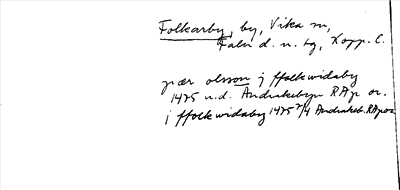 Folkarby, by, Vika sn,
Falu d. n. tg, Kopp. l.
pær olsson j ffolkwidaby
1475 u.d. Andrakebyn RAp or.
j ffolkwidaby 1475 7/4 Andrakeb. RAp or